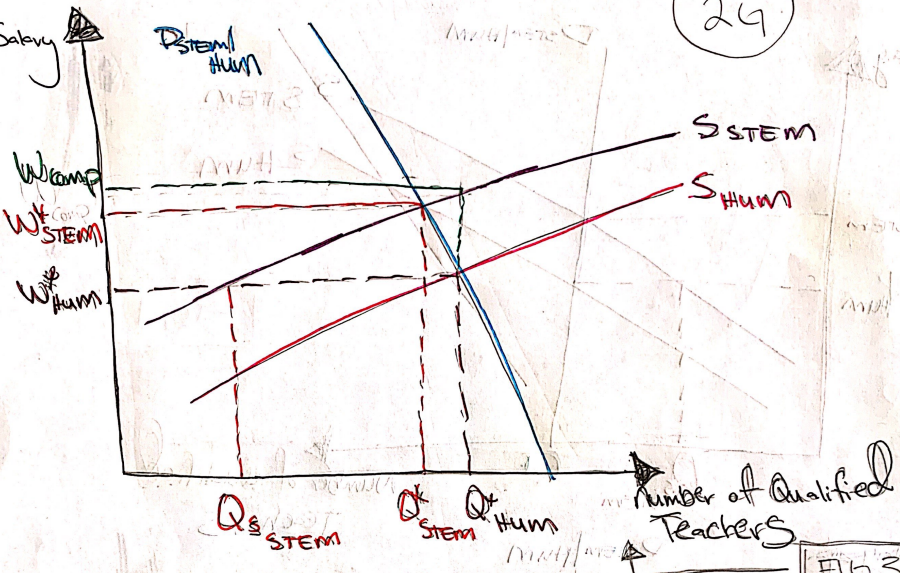 Salary
24
D STEM/
HUM
S STEM
S HUM
W comp
W* STEM
W* HUM
Qs STEM
Q* STEM
Q* HUM
Number of Qualified
Teachers